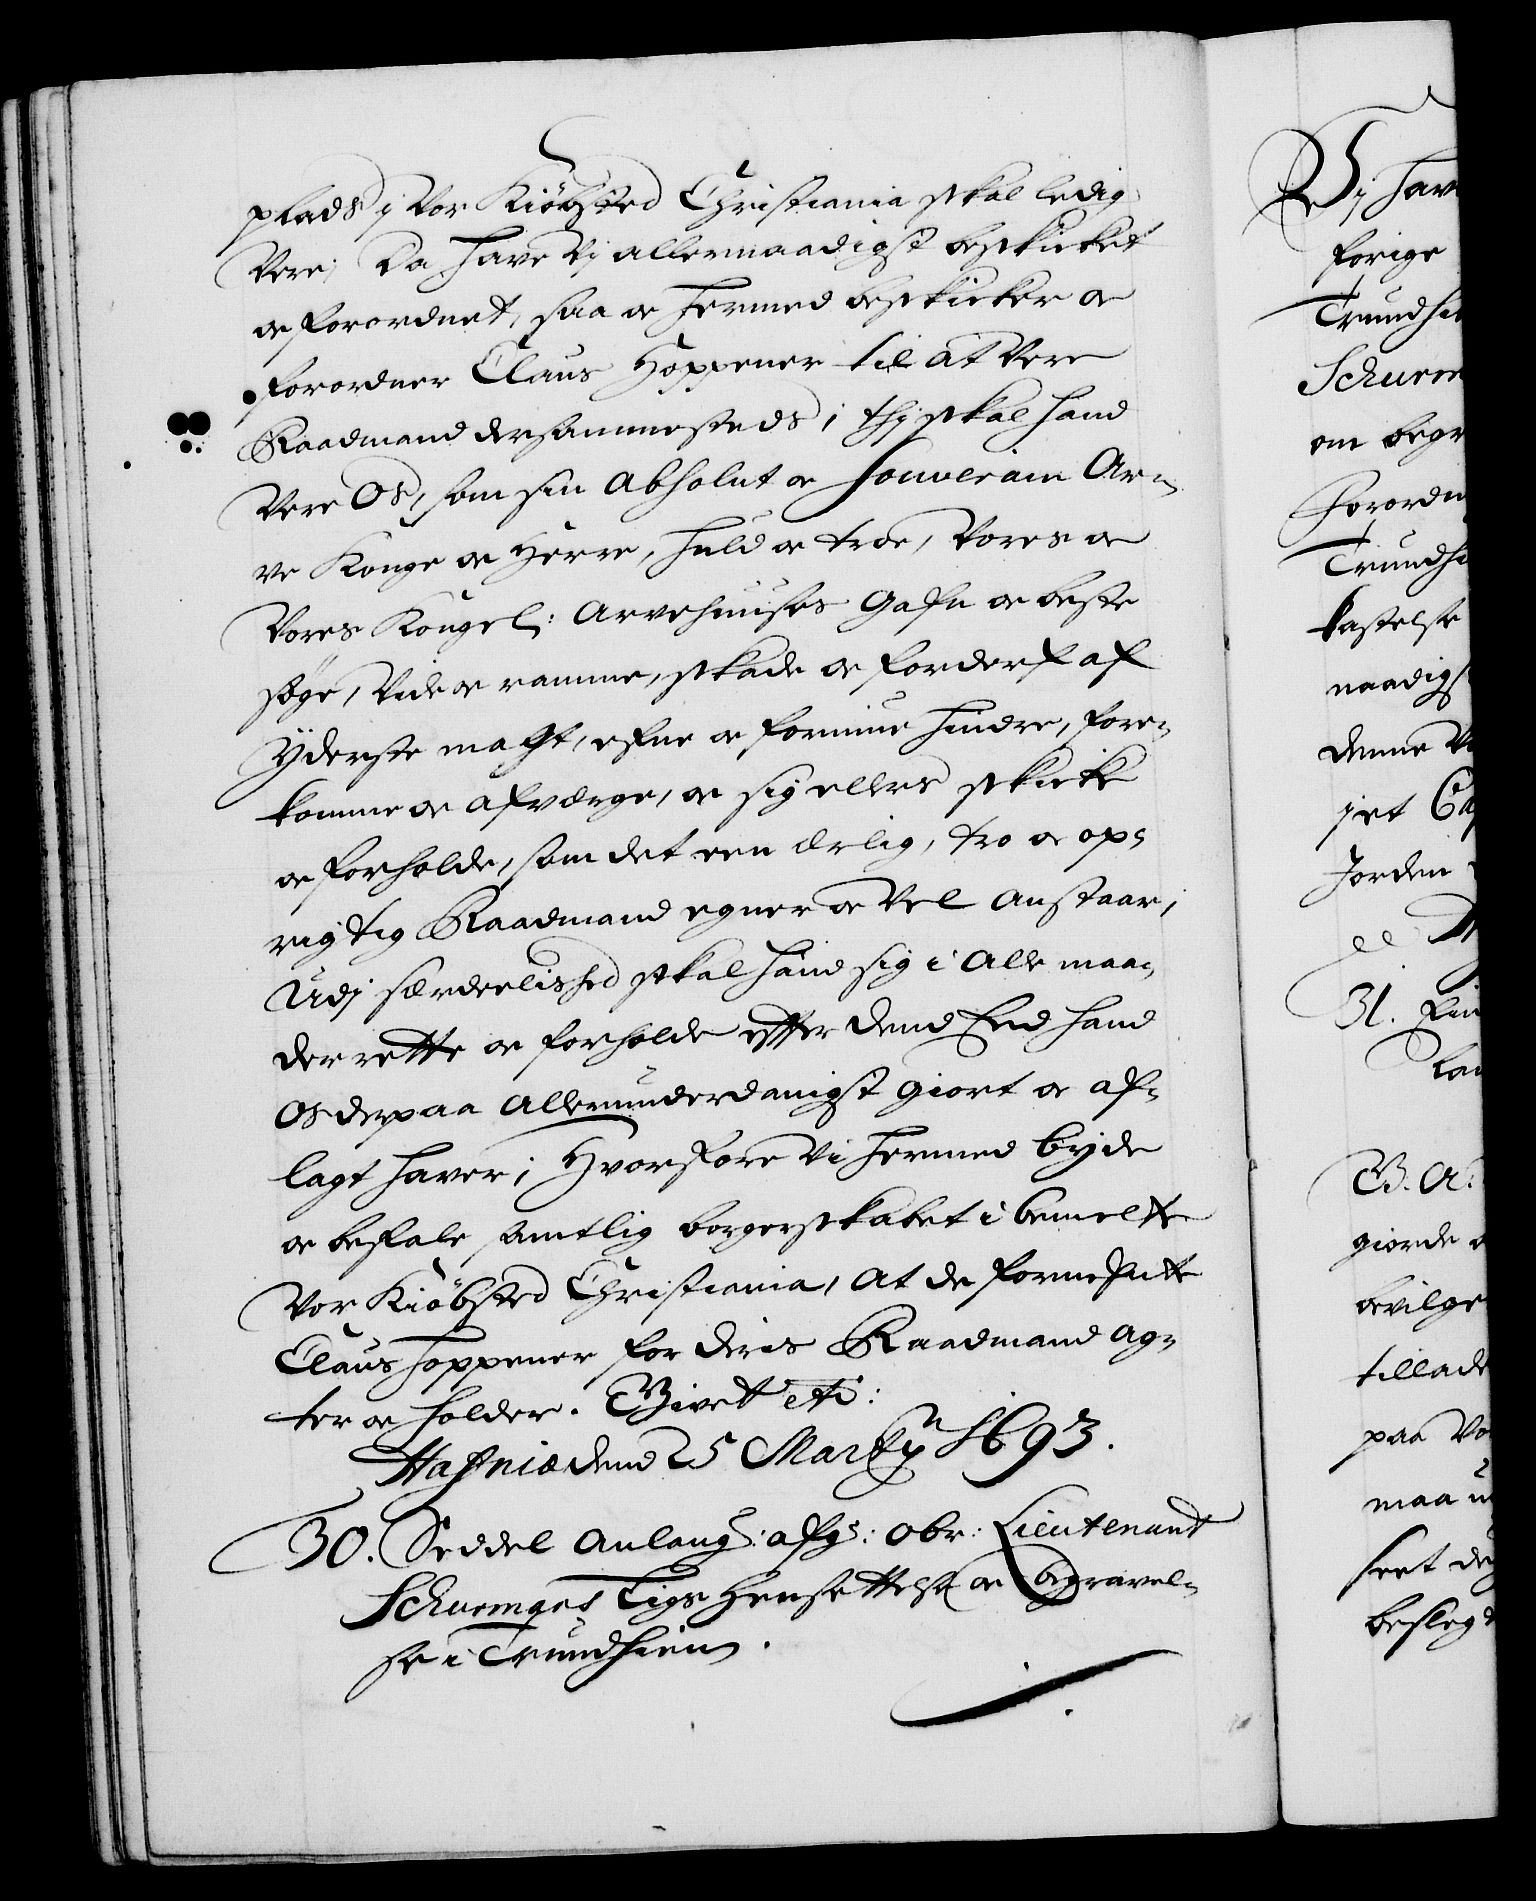 plads j Vor Kiöbsted Christiania skal ledig
Vere; Da have Vj allernaadigst beskicket
oc forordnet, saa oc hermed beskicker oc
forordner Claus Hoppener til at Vere
Raadmand dersammesteds; thj skal hand
Vere Os, som sin Absolut oc Souverain Ar-
ve Konge oc Herre, huld oc troe, Vores oc
Vores Kongel: Arvehuuses Gafn oc beste
søge, Vide oc ramme, skade oc forderf af
Yderste magt, efne oc formue hindre, fore-
komme oc afverge, oc sig ellers skicke
oc forholde, som det een ærlig, tro oc op-
rigtig Raadmand egner oc Vel anstaar;
Udj særdeelished skal hand sig i alle maa-
der rette oc forholde effter dend Eed hand
Os derpaa Allerunderdanigst giort oc af-
lagt haver; Hvorfore Vi hermed byde
oc befale samtlig borgerskabet i bemelte
Vor Kiöbsted Christiania, At de fornefnte
Claus Hoppener for deris Raadmand ag-
ter oc holder. Givet etc:
Hafniæ dend 25 Martij 1693.
30. Seddel Anlang: afg: obr: Lieutenant
Schurmans Ligs Hensettelse oc Begravel-
se i Trundhiem.
Vj hav
forige
Trundhi
Schurm
om begr
Forordn
Trundhi
kastelse
naadigs
denne Vo
jet Ca
Jorden
31. Fin
Lan
G. A:
giorde
bevilge
tillade
paa Vo
maa u
seet de
besleg